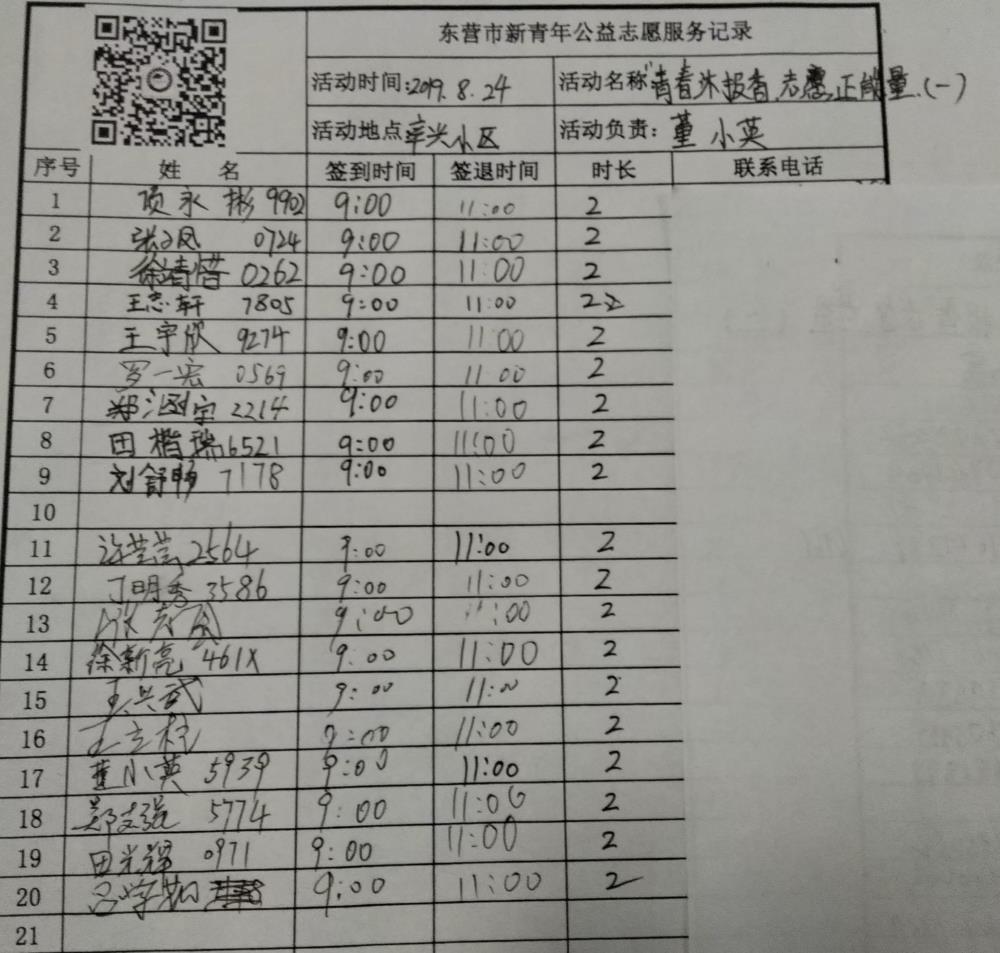 东营市新青年公益志愿服务记录
活动时间:2019.8.24 活动名称"青春沐报香、志愿正能量、(一)
活动地点:辛兴小区 活动负责:董小英
序号 姓名 签到时间 签退时间 时长 联系电话
1 项永彬 9902 9:00 11:00 2
2 0724 9:00 11:00 2
3 0262 9:00 11:00 2
4 王志轩 7805 9:00 11:00 2
5 王宇欣 9274 9:00 11:00 2
6 罗一宏 0569 9:00 11:00 2
7 2214 9:00 11:00 2
8 田楷瑞 6521 9:00 11:00 2
9 刘舒畅 7178 9:00 11:00 2
10
11 许芸芸 2564 9:00 11:00 2
12 丁明秀 3586 9:00 11:00 2
13 9:00 11:00 2
14 徐新亮 461X 9:00 11:00 2
15 王兴武 9:00 11:00 2
16 王立柱 9:00 11:00 2
17 董小英 5939 9:00 11:00 2
18 5774 9:00 11:00 2
19 田光辉 0971 9:00 11:00 2
20 9:00 11:00 2
21